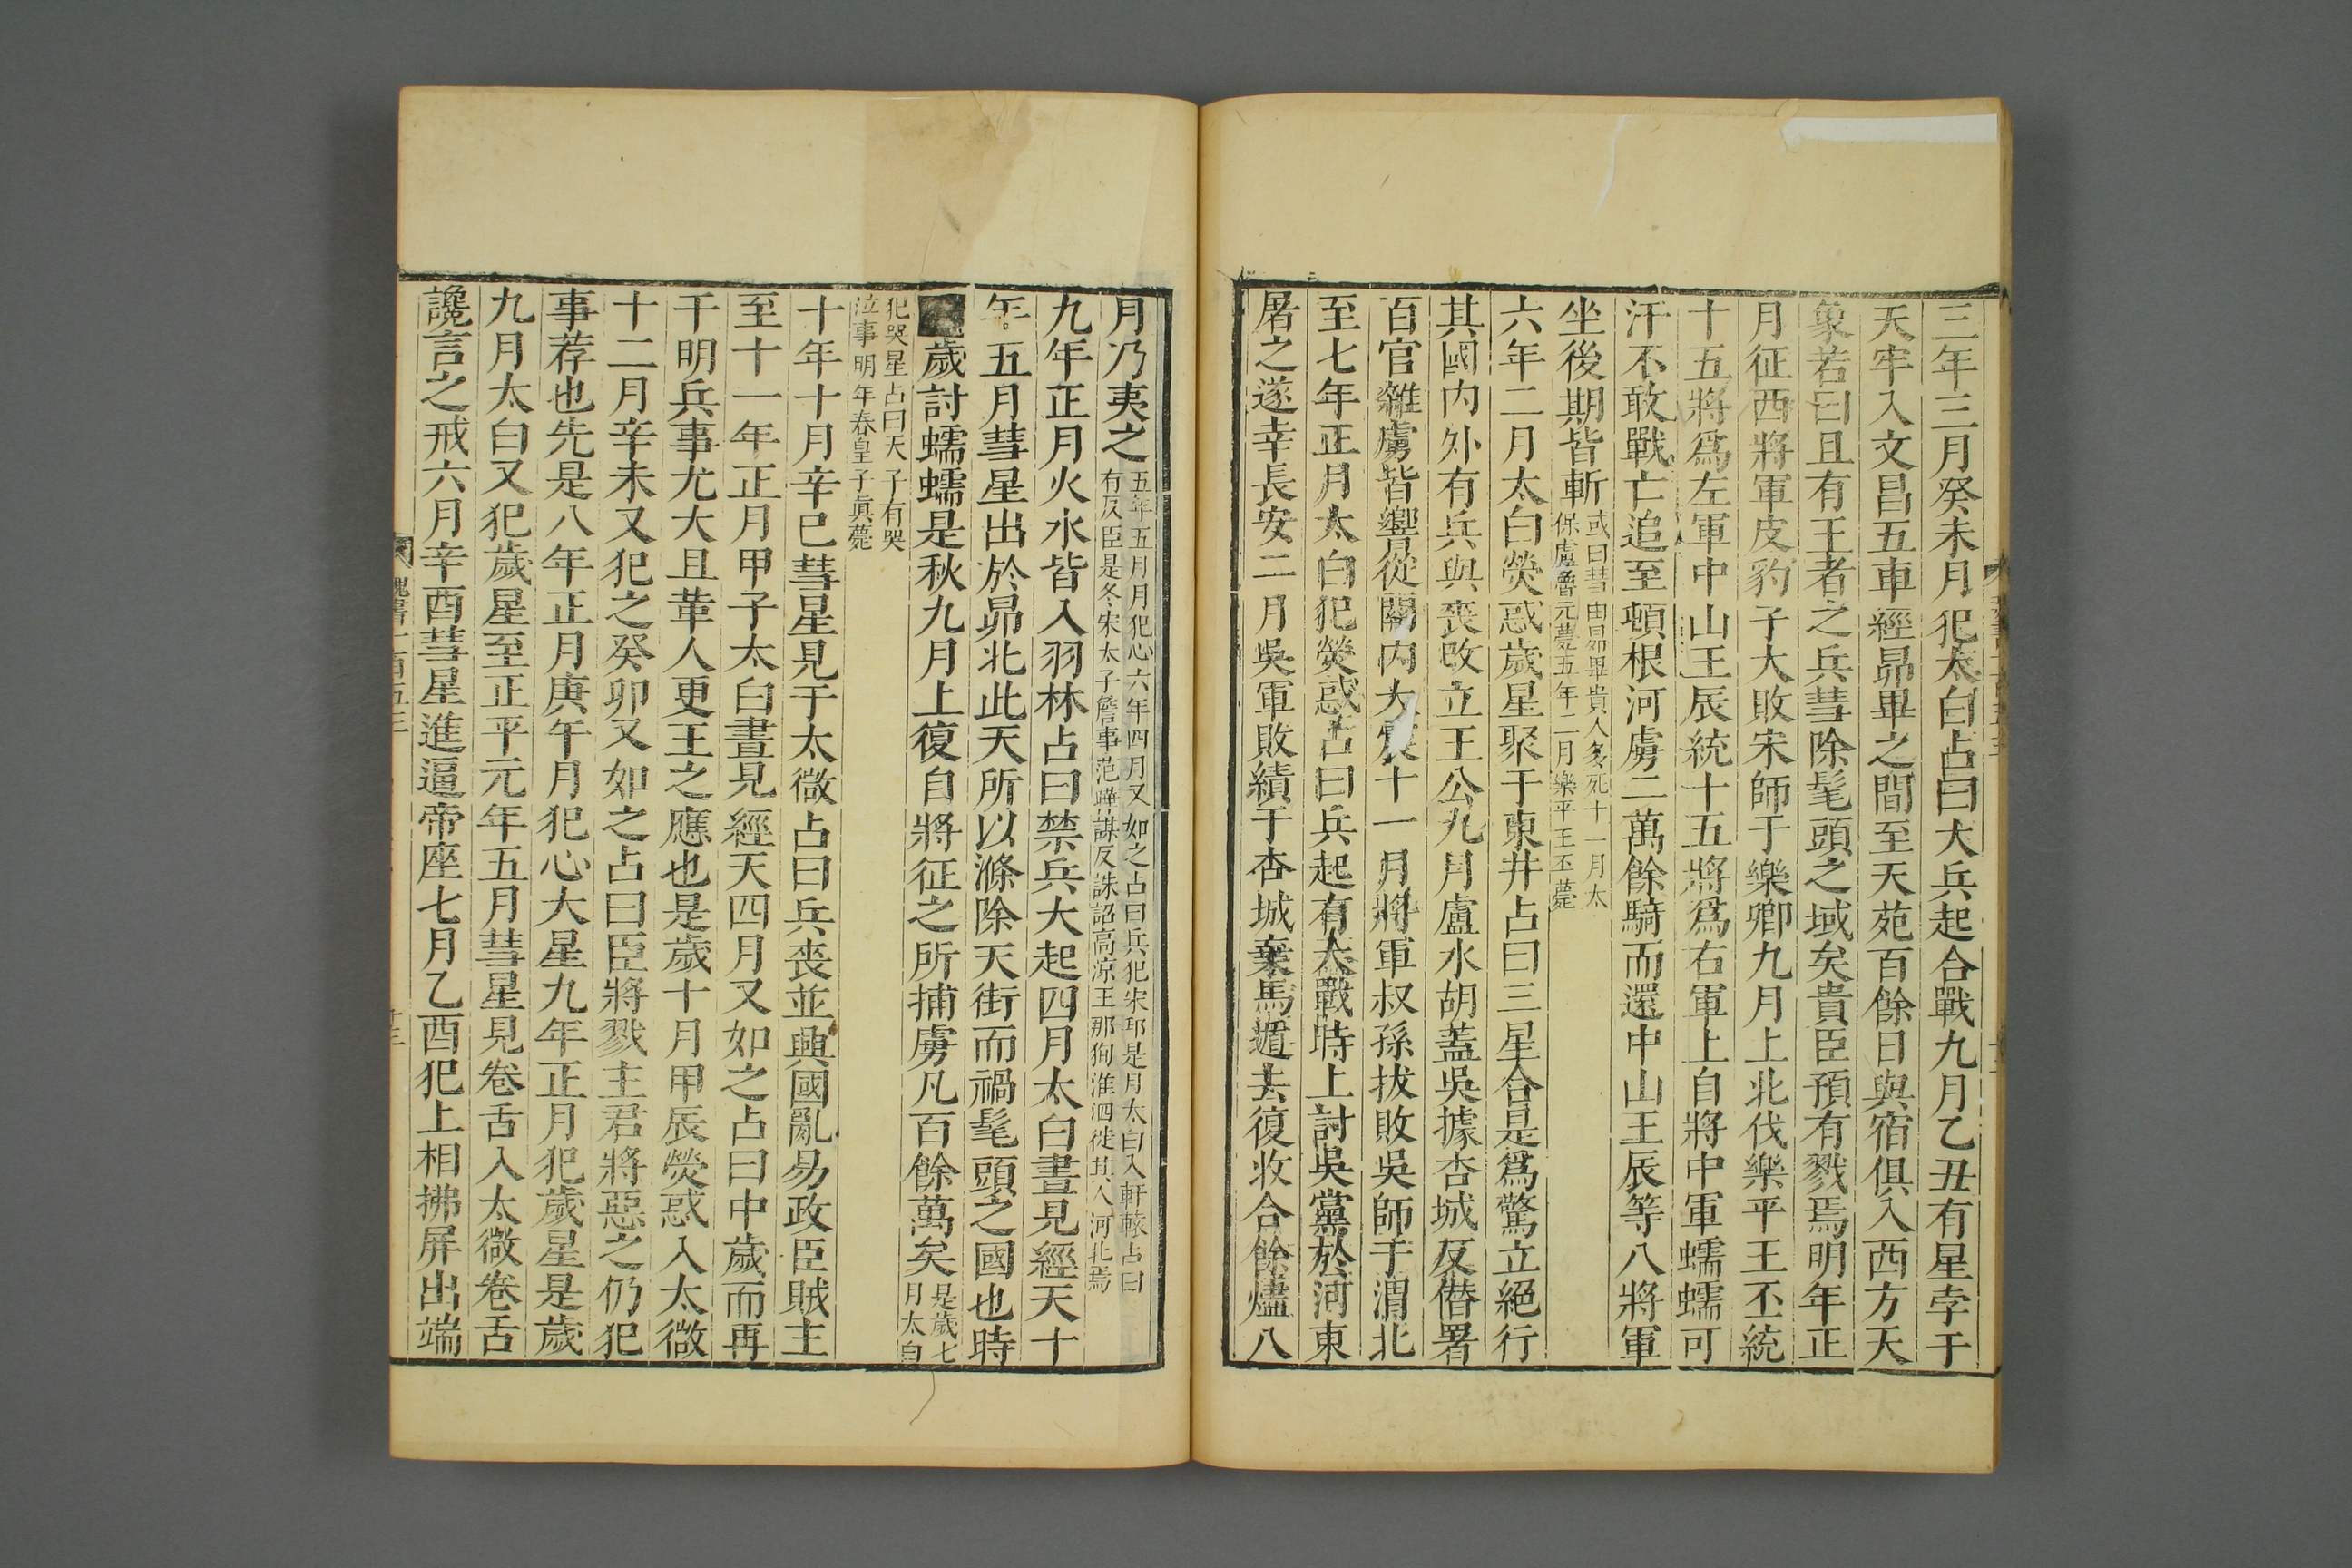 三年三月癸未月犯太白占曰大兵起合戰九月乙丑有星孛于
天牢入文昌五車經昴畢之間至天苑百餘日與宿俱入西方天
象若曰且有王者之兵彗除髦頭之域矣貴臣預有戮焉明年正
月征西將軍皮豹子大敗宋師于樂鄉九月上北伐樂平王丕統
十五將爲左軍中山王辰統十五將爲右軍上自將中軍蠕蠕可
汗不敢戰亡追至頓根河虜二萬餘騎而還中山王辰等八將軍
坐後期皆斬
或曰彗由昴畢貴人多死十一月太
保盧魯元薨五年二月樂平王丕薨
六年二月太白熒惑歲星聚于東井占曰三星合是爲驚立絕行
其國內外有兵與喪改立王公九月盧水胡蓋吳據杏城反僣署
百官雜虜皆響從關内大震十一月將軍叔孫拔敗吳師于渭北
至七年正月太白犯熒惑占曰兵起有大戰時上討吳黨於河東
屠之遂幸長安二月吳軍敗績于杏城棄馬遁去復收合餘燼八
月乃夷之
五年五月月犯心六年四月又如之占曰兵犯宋邳是月太白入軒轅占曰
有反臣是冬宋太子詹事范曄謀反誅詔高涼王那徇淮泗徙其人河北焉
九年正月火水皆入羽林占曰禁兵大起四月太白晝見經天十
年五月彗星出於昴北此天所以滌除天街而禍髦頭之國也時
歲討蠕蠕是秋九月上復自將征之所捕虜凡百餘萬矣
是歲七
月太白
犯哭星占曰天子有哭
泣事明年春皇子眞薨
十年十月辛巳彗星見于太微占曰兵喪並興國亂易政臣賊主
至十一年正月甲子太白晝見經天四月又如之占曰中歲而再
干明兵事尤大且革人更王之應也是歲十月甲辰熒惑入太微
十二月辛未又犯之癸卯又如之占曰臣將戮主君將惡之仍犯
事荐也先是八年正月庚午月犯心大星九年正月犯歲星是歲
九月太白又犯歲星至正平元年五月彗星見卷舌入太微卷舌
讒言之戒六月辛酉彗星進逼帝座七月乙酉犯上相拂屏出端